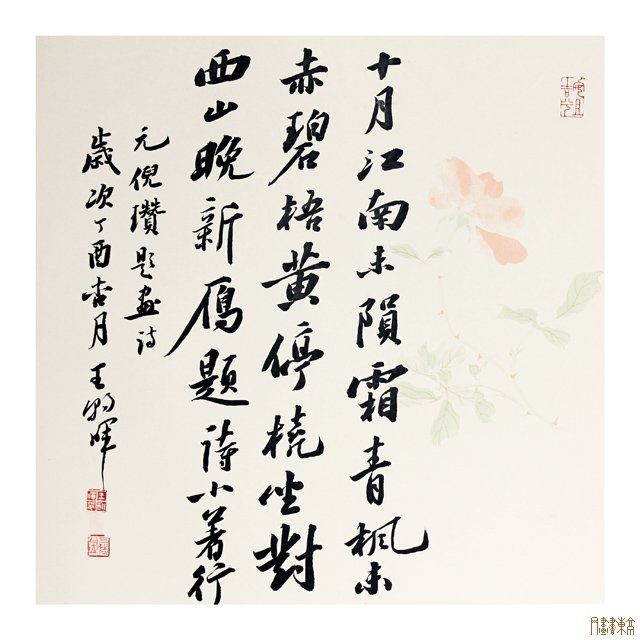 十月江南未隕霜青楓未
赤碧梧黄停橈坐對
西山晚新鴈題詩小著行
元倪瓚題畫诗
歲次丁酉杏月王